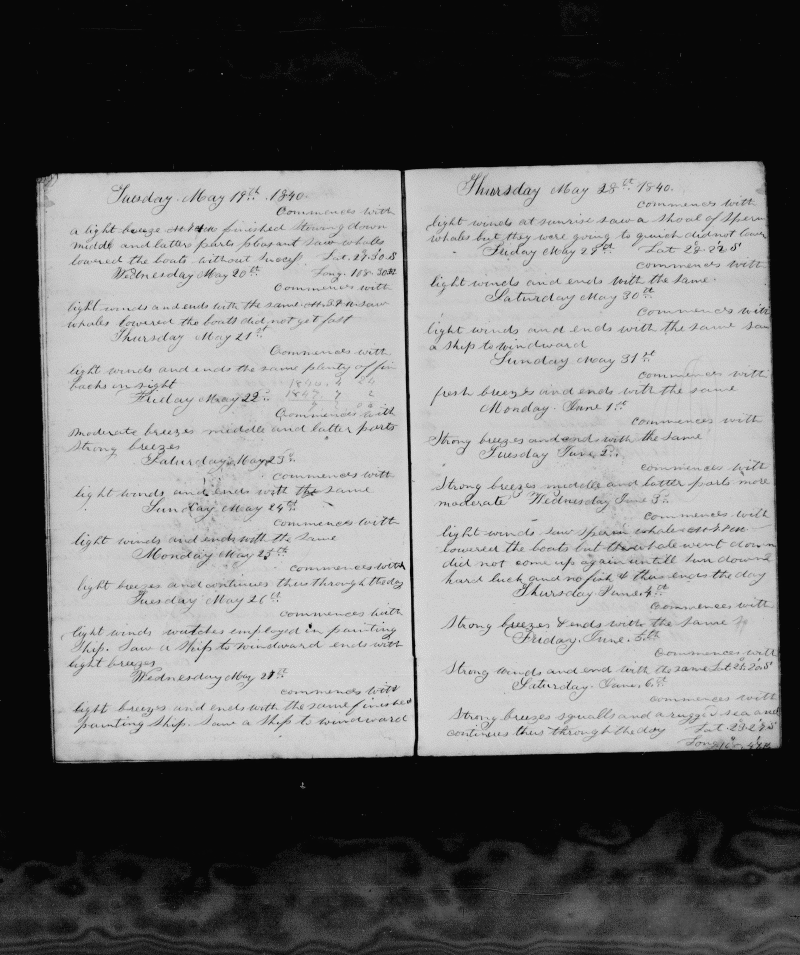 Tuesday May 19th 1840.
Commences with
a light breeze finished stowing down
middle and latter parts pleasant saw whales
lowered the boats without sucess Lat. 27.30 S
Wednesday May 20th Long. 108.30
Commences with
light winds and ends with the same saw
whales lowered the boats did not get fast
Thursday May 21st
Commences with
light winds and ends the same plenty of fin
backs in sight
1840 4
Friday May 22nd 1847 7 2
Commences with
moderate breezes middle and latter parts
strong breezes
Saturday May 23rd
Commences with
light winds and ends with the same
Sunday May 24th
Commences with
light winds and ends with the same
Monday May 25th
commences with
light breezes and continues thus through the day
Tuesday May 26th
commences with
light winds watches employed in painting
Ship. Saw a Ship to windward ends with
light breezes
Wednesday May 27th
commences with
light breezes and ends with the same finished
painting Ship. Saw a Ship to windward
Thursday May 28th 1840.
Commences with
light winds at sunrise saw a shoal of Sperm
whales but they were going to quick did not lower
Friday May 29th Lat 28.22 S
commences with
light winds and ends with the same.
Saturday May 30th
Commences with
light winds and ends with the same saw
a ship to windward
Sunday May 31st
commences with
fresh breezes and ends with the same
Monday. June 1st
commences with
Strong breezes and ends with the same
Tuesday June 2nd
commences with
Strong breezes middle and latter parts more
moderate Wednesday June 3rd
commences with
light winds saw sperm whales
lowered the boats but the whale went down
did not come up again untill sun down
hard luck and no fish & thus ends the day
Thursday June. 4th
Commences with
Strong breezes & ends with the same
Friday. June. 5th
Commences with
Strong winds and end with the same Lat 28.20 S
Saturday. June. 6th
commences with
Strong breezes squalls and a rugged sea and
continues thus through the day Lat 28.27 S
Long